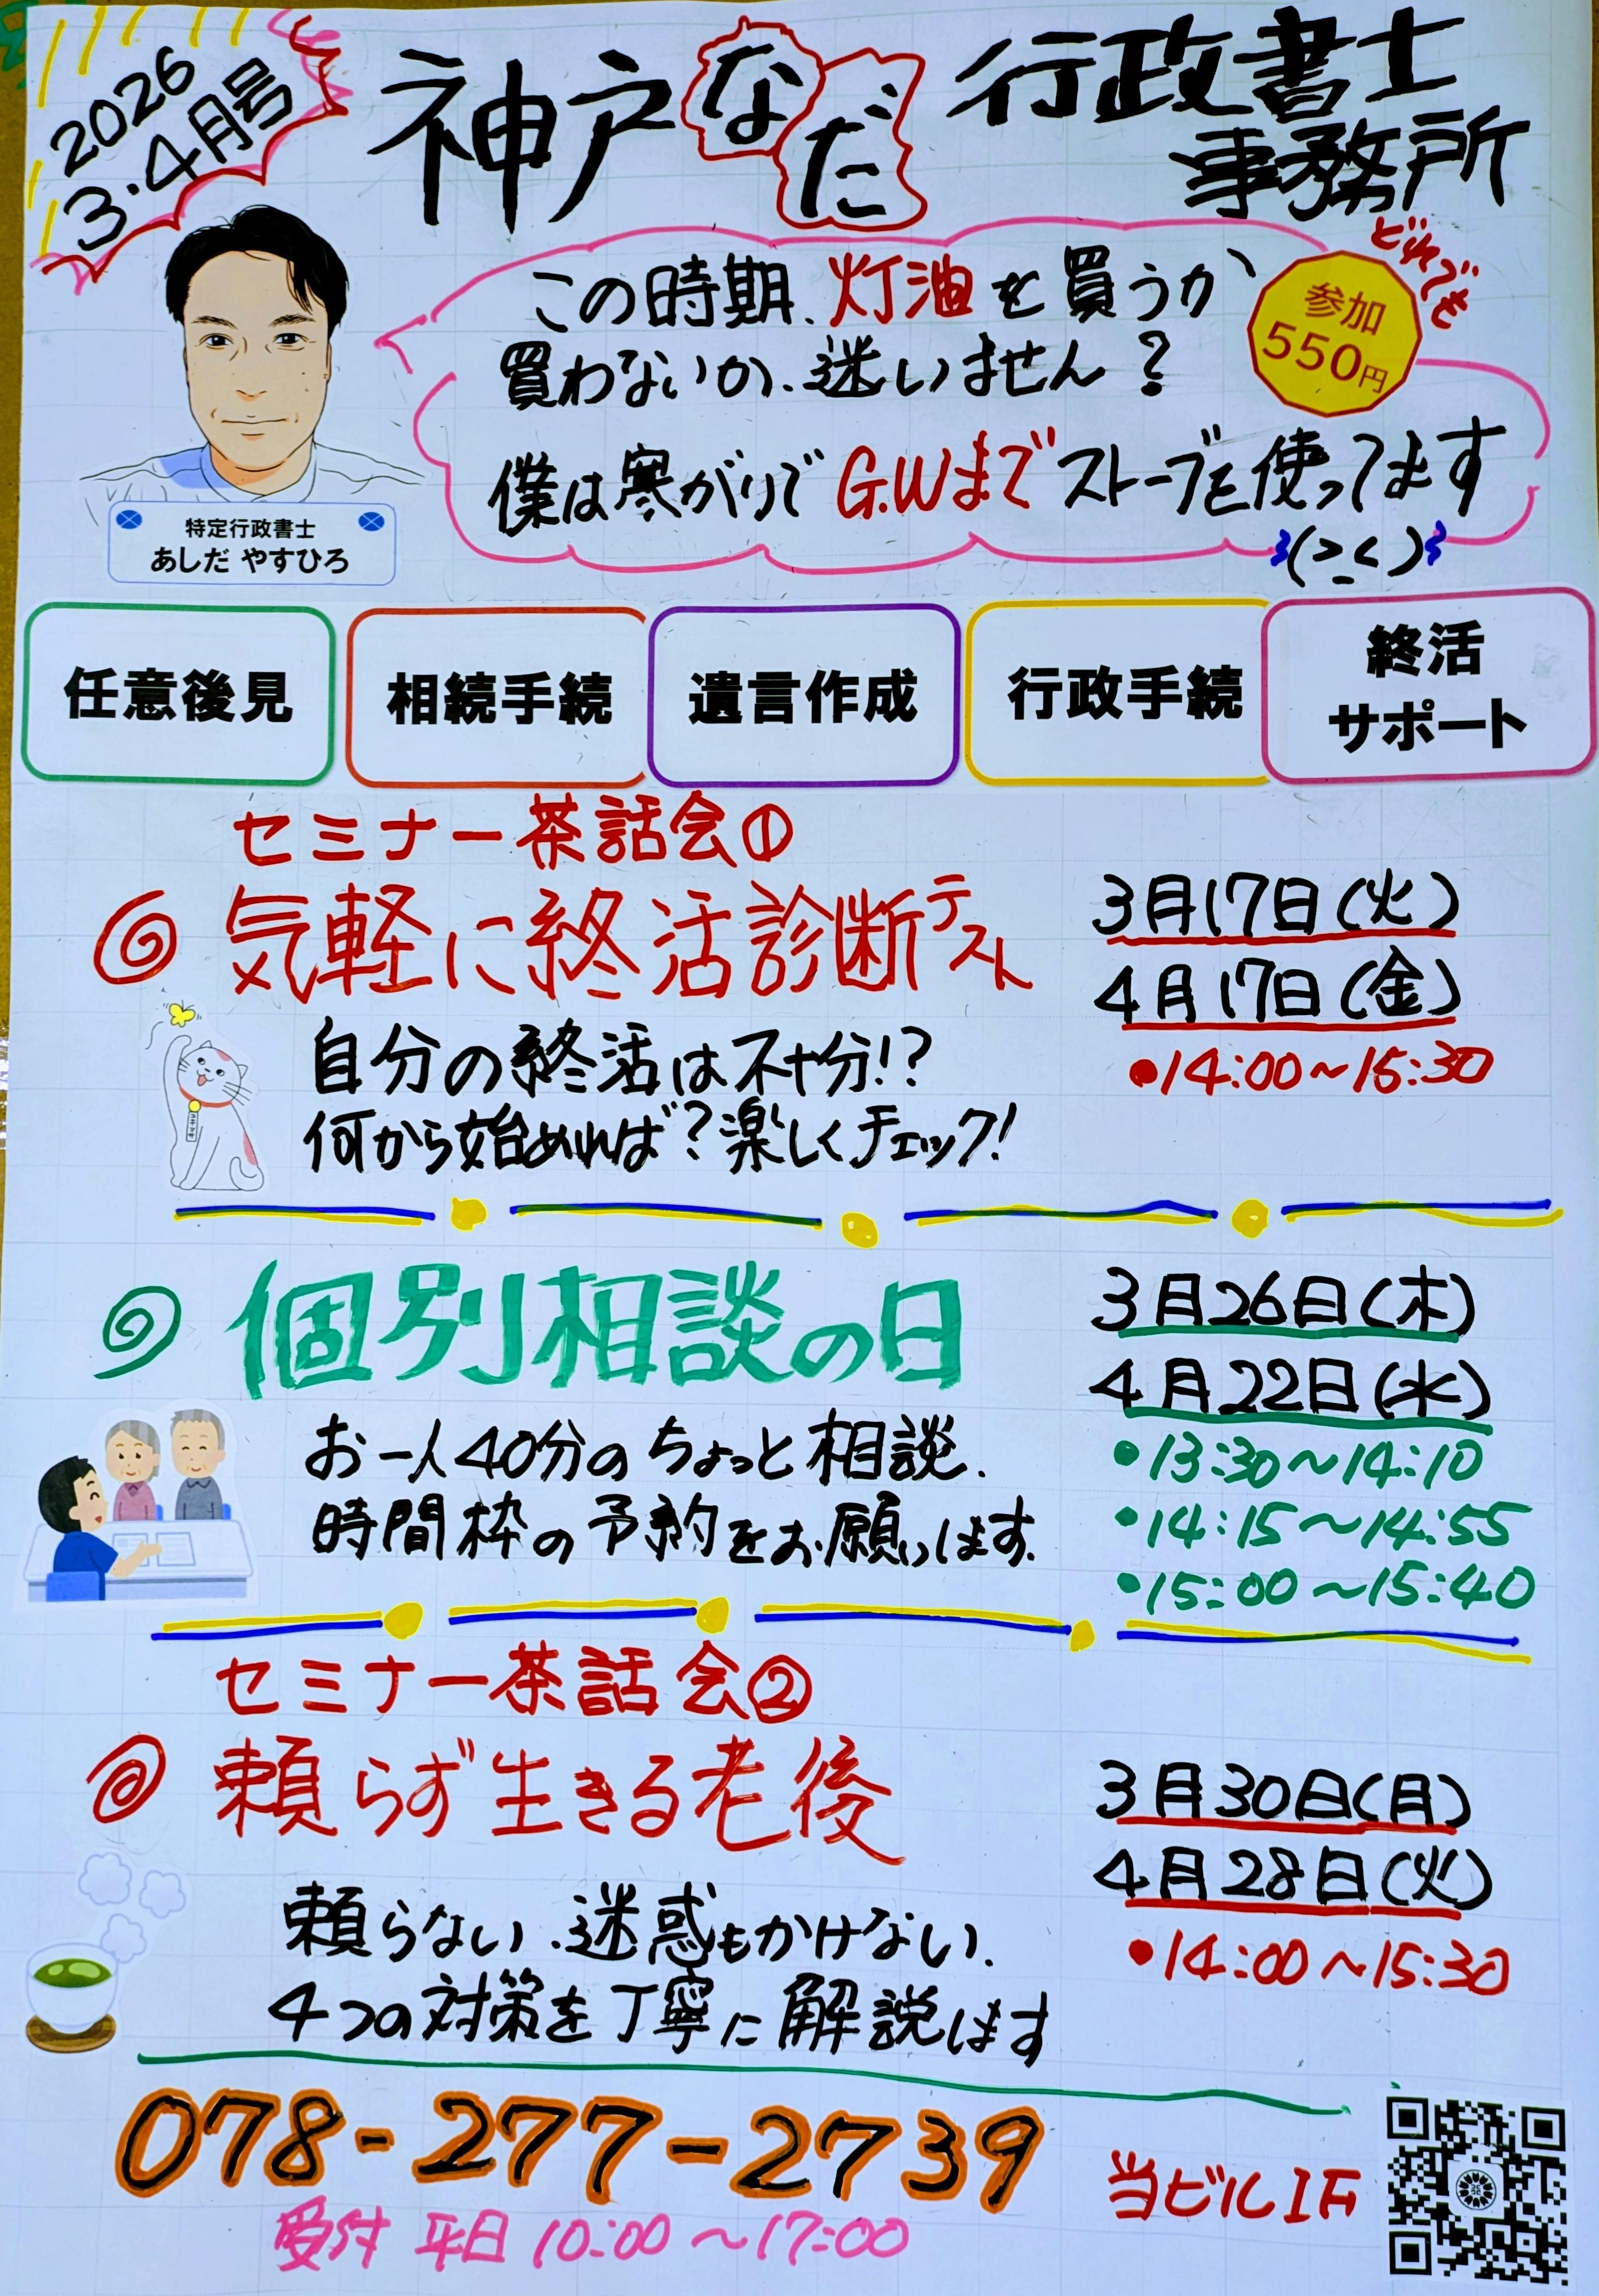 2026
3・4月号
神戸なだ行政書士
事務所
この時期、灯油を買うか
買わないか、迷いません？
僕は寒がりでG.Wまでストーブを使ってます
(>_<)
どれでも
参加
550円
特定行政書士
あしだ やすひろ
任意後見
相続手続
遺言作成
行政手続
終活
サポート
セミナー茶話会①
気軽に終活診断テスト
3月17日(火)
4月17日(金)
•14:00～15:30
自分の終活は不十分!?
何から始めれば？楽しくチェック！
個別相談の日
3月26日(木)
4月22日(水)
•13:30～14:10
•14:15～14:55
•15:00～15:40
お一人40分のちょっと相談、
時間枠の予約をお願いします。
セミナー茶話会②
頼らず生きる老後
3月30日(月)
4月28日(火)
•14:00～15:30
頼らない、迷惑もかけない、
4つの対策を丁寧に解説します
078-277-2739
受付 平日 10:00～17:00
当ビル1F